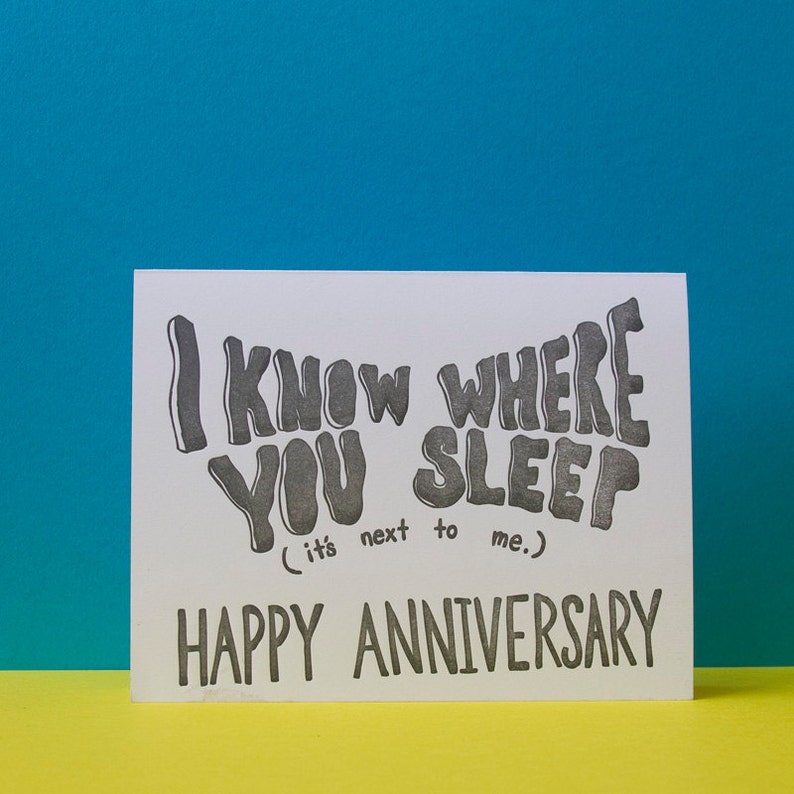 I KNOW WHERE
YOU SLEEP
(it's next to me.)
HAPPY ANNIVERSARY